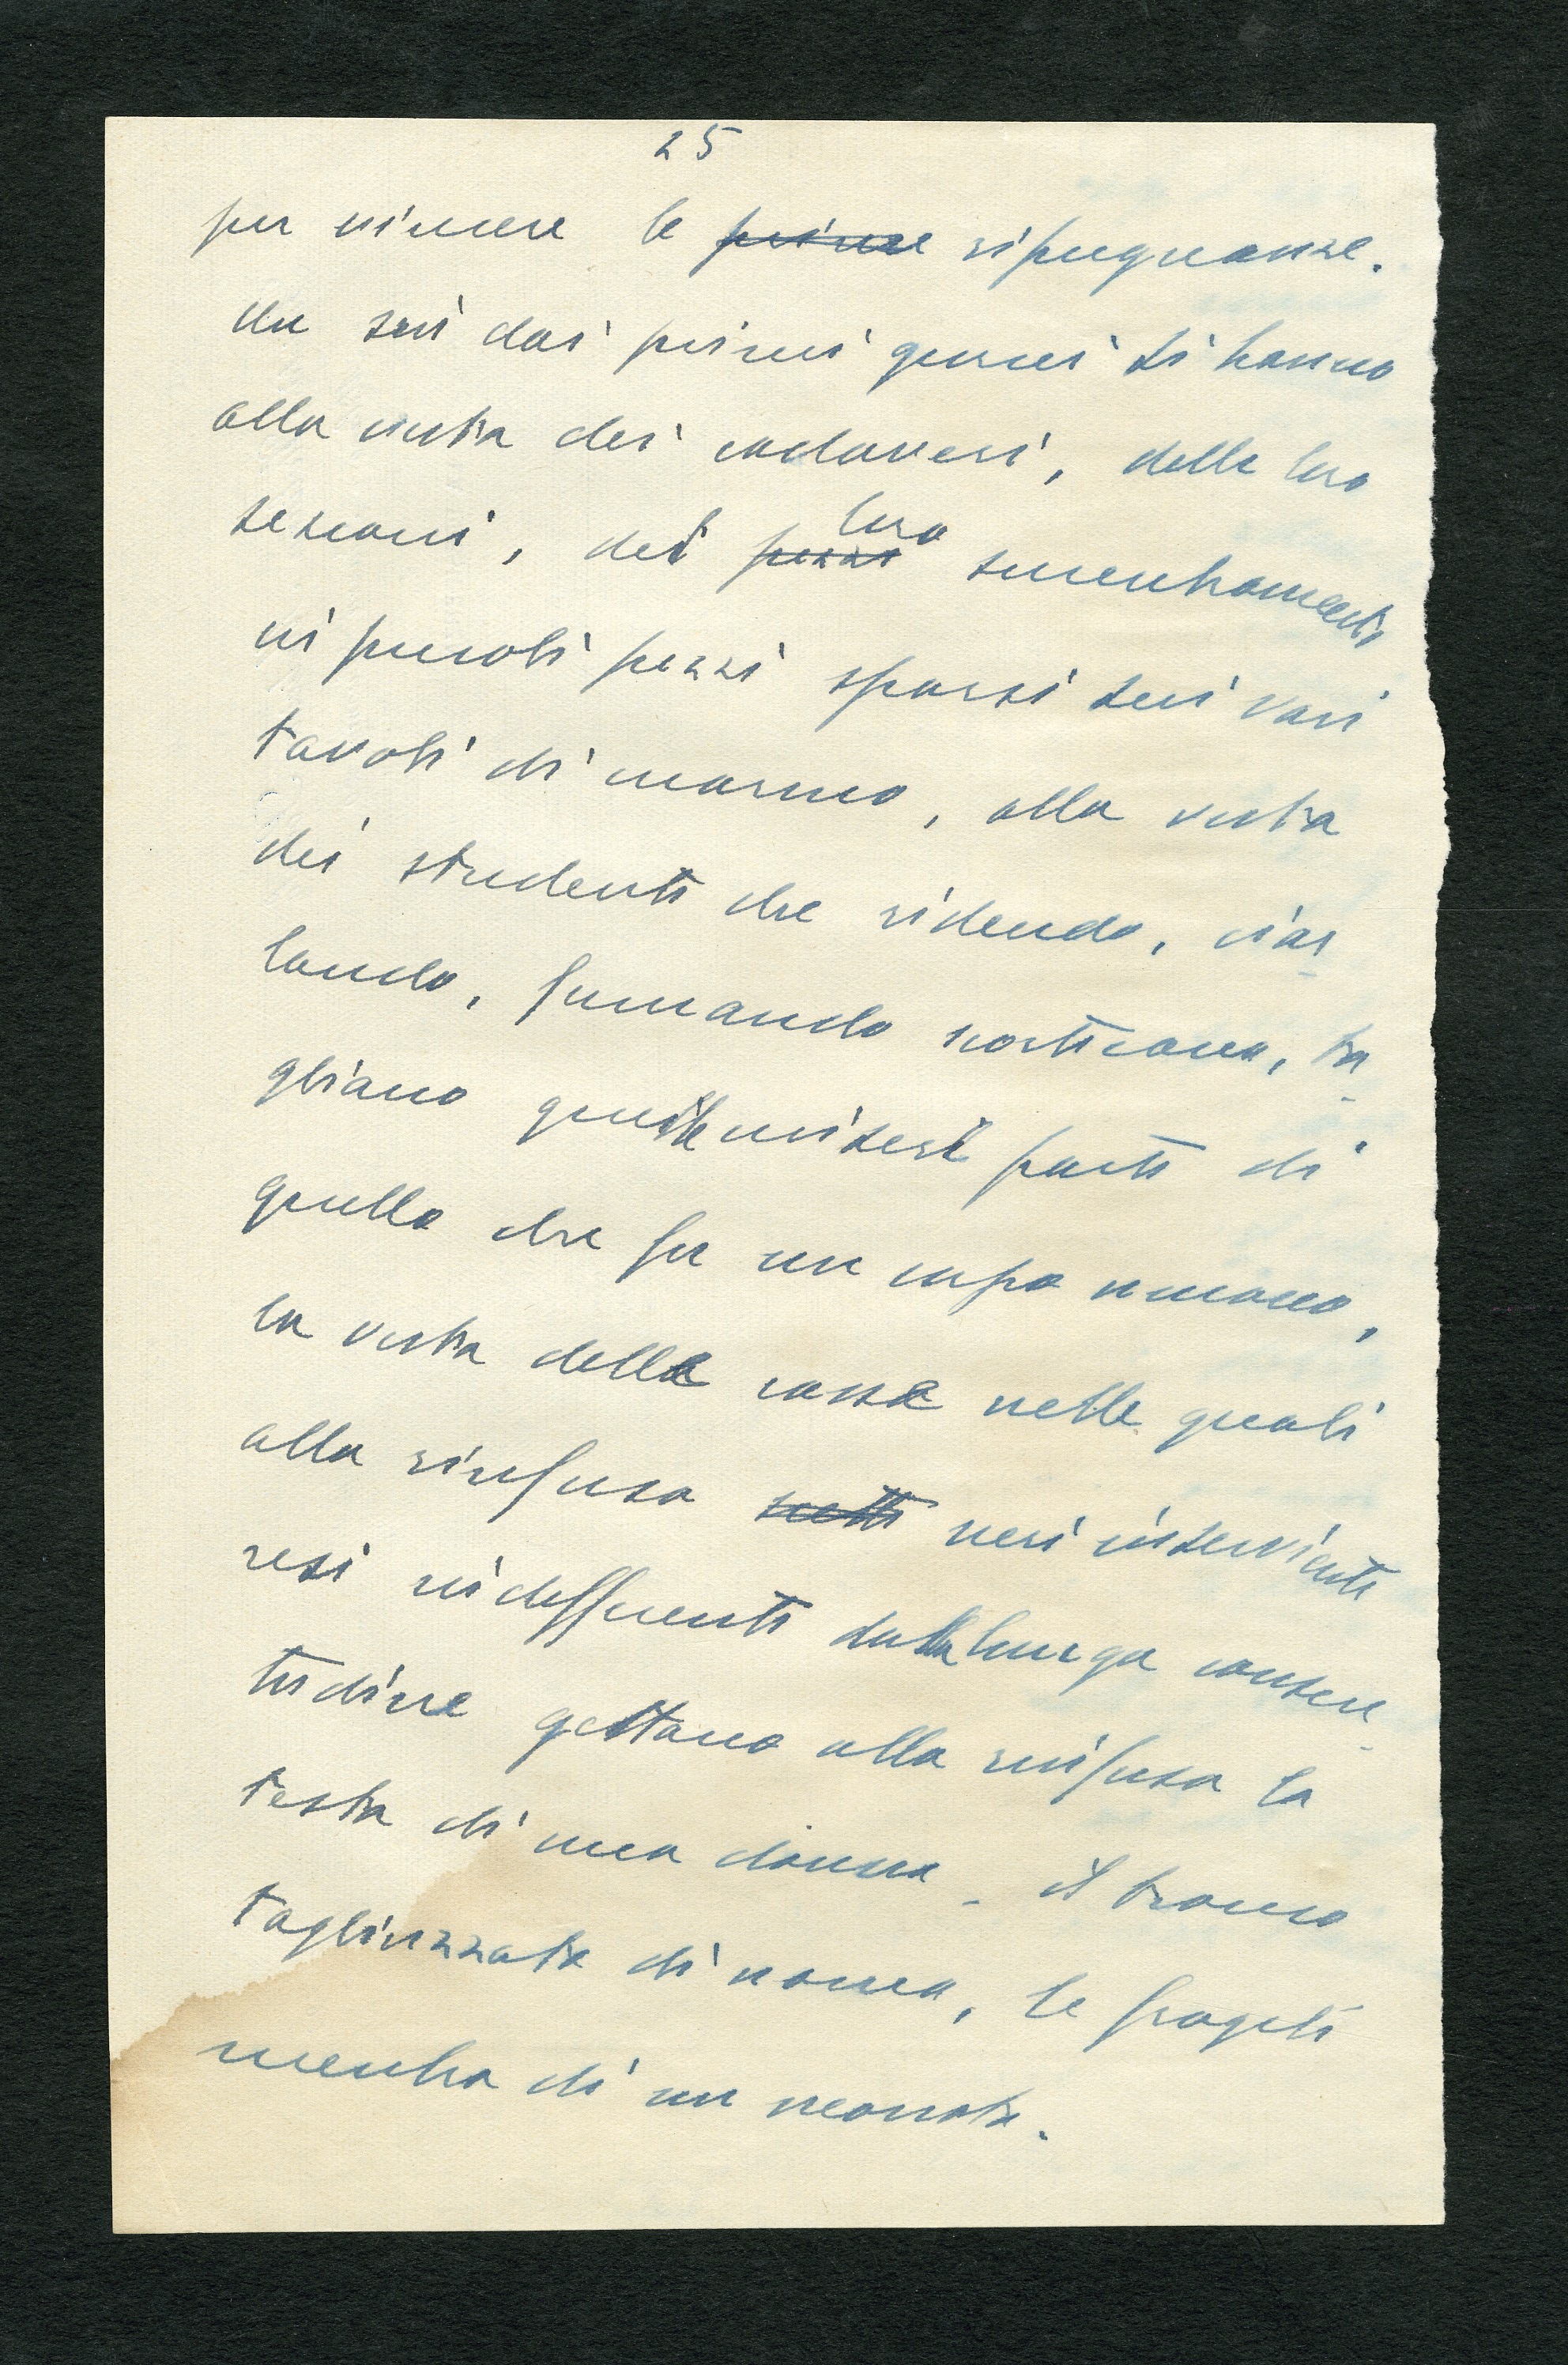 25
per vincere le prime ripugnanze.
che sin dai primi giorni si hanno
alla vista dei cadaveri, delle loro
sezioni, del loro smembramento
in piccoli pezzi sparsi sui vari
tavoli di marmo, alla vista
dei studenti che ridendo, ciar
lando, fumando tagliano, ta
gliano quelle misere parti di
quello che fu un corpo umano,
la vista delle casse nelle quali
alla rinfusa neri inservienti
resi indifferenti dalla lunga consue
tudine gettano alla rinfusa la
testa di una donna, il tronco
tagliuzzato di uomo, le fragili
membra di un neonato.